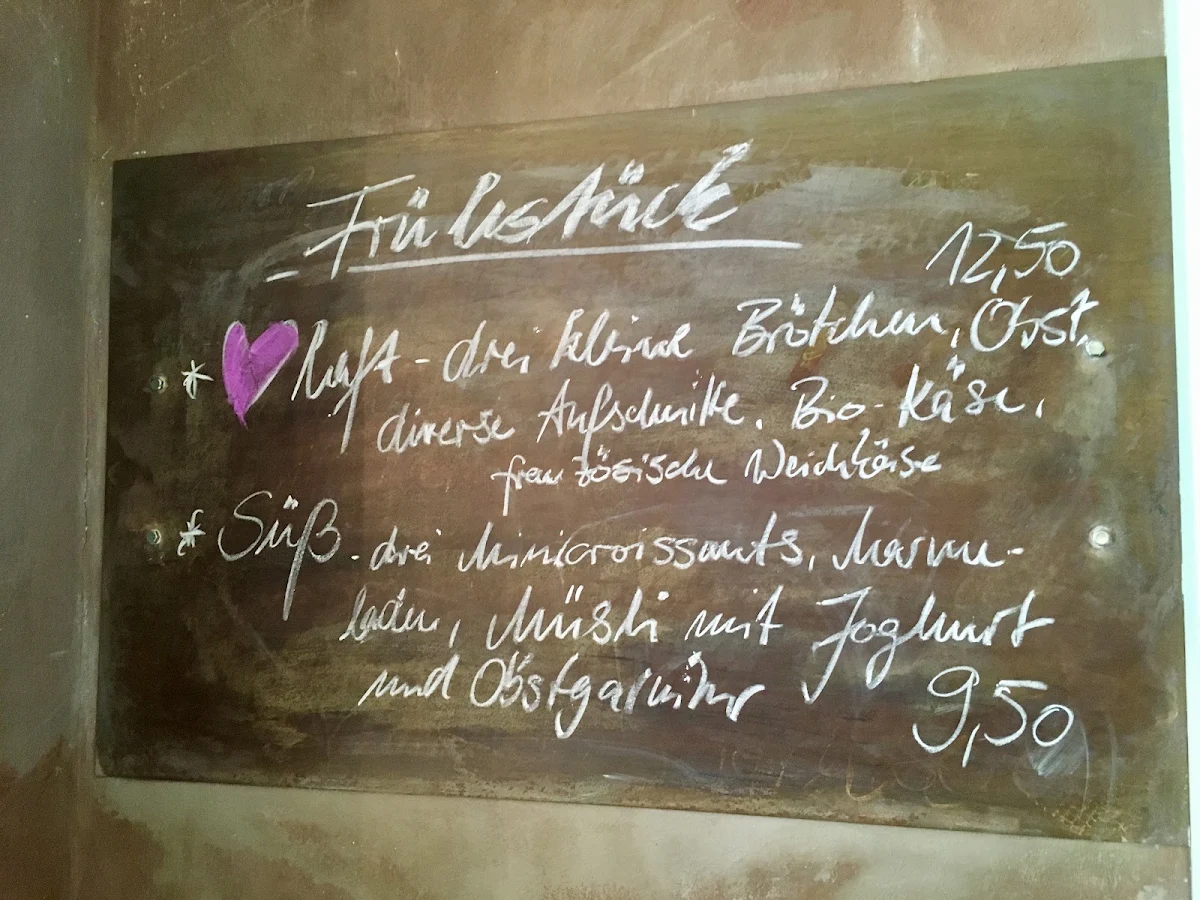 Frühstück
12,50
* ♥haft - drei kleine Brötchen, Obst,
diverse Aufschnitte, Bio-Käse,
französische Weichkäse
* Süß - drei Minicroissants, Marme-
laden, Müsli mit Joghurt
und Obstgarnitur
9,50